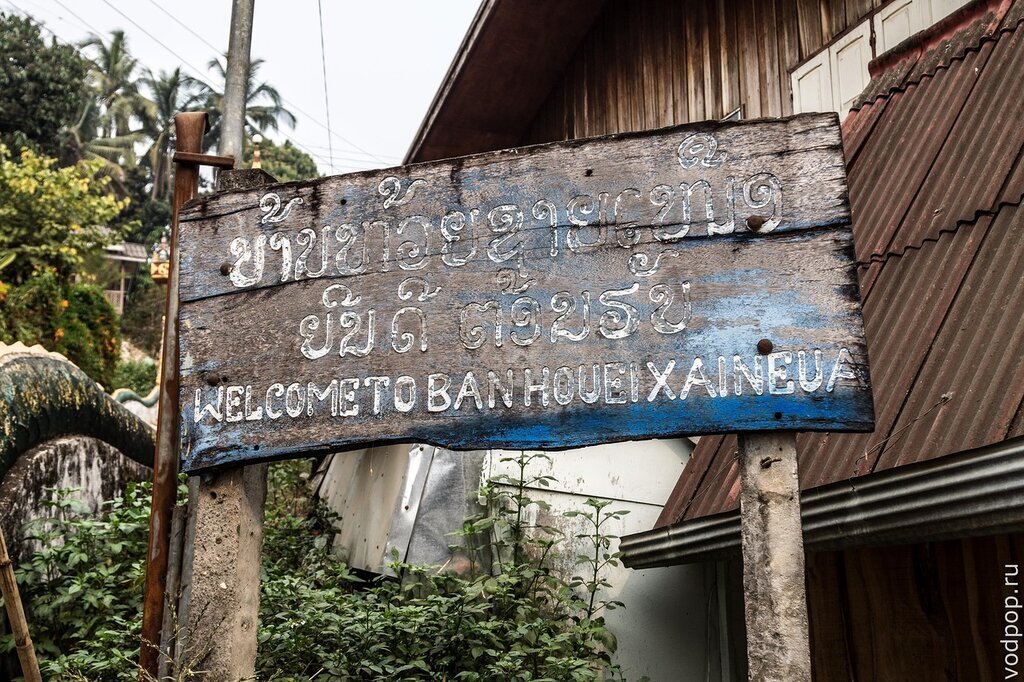 ບ້ານຫ້ວຍຊາຍເໜືອ
ຍິນດີ ຕ້ອນຮັບ
WELCOME TO BAN HOUEI XAINEUA
vodpop.ru